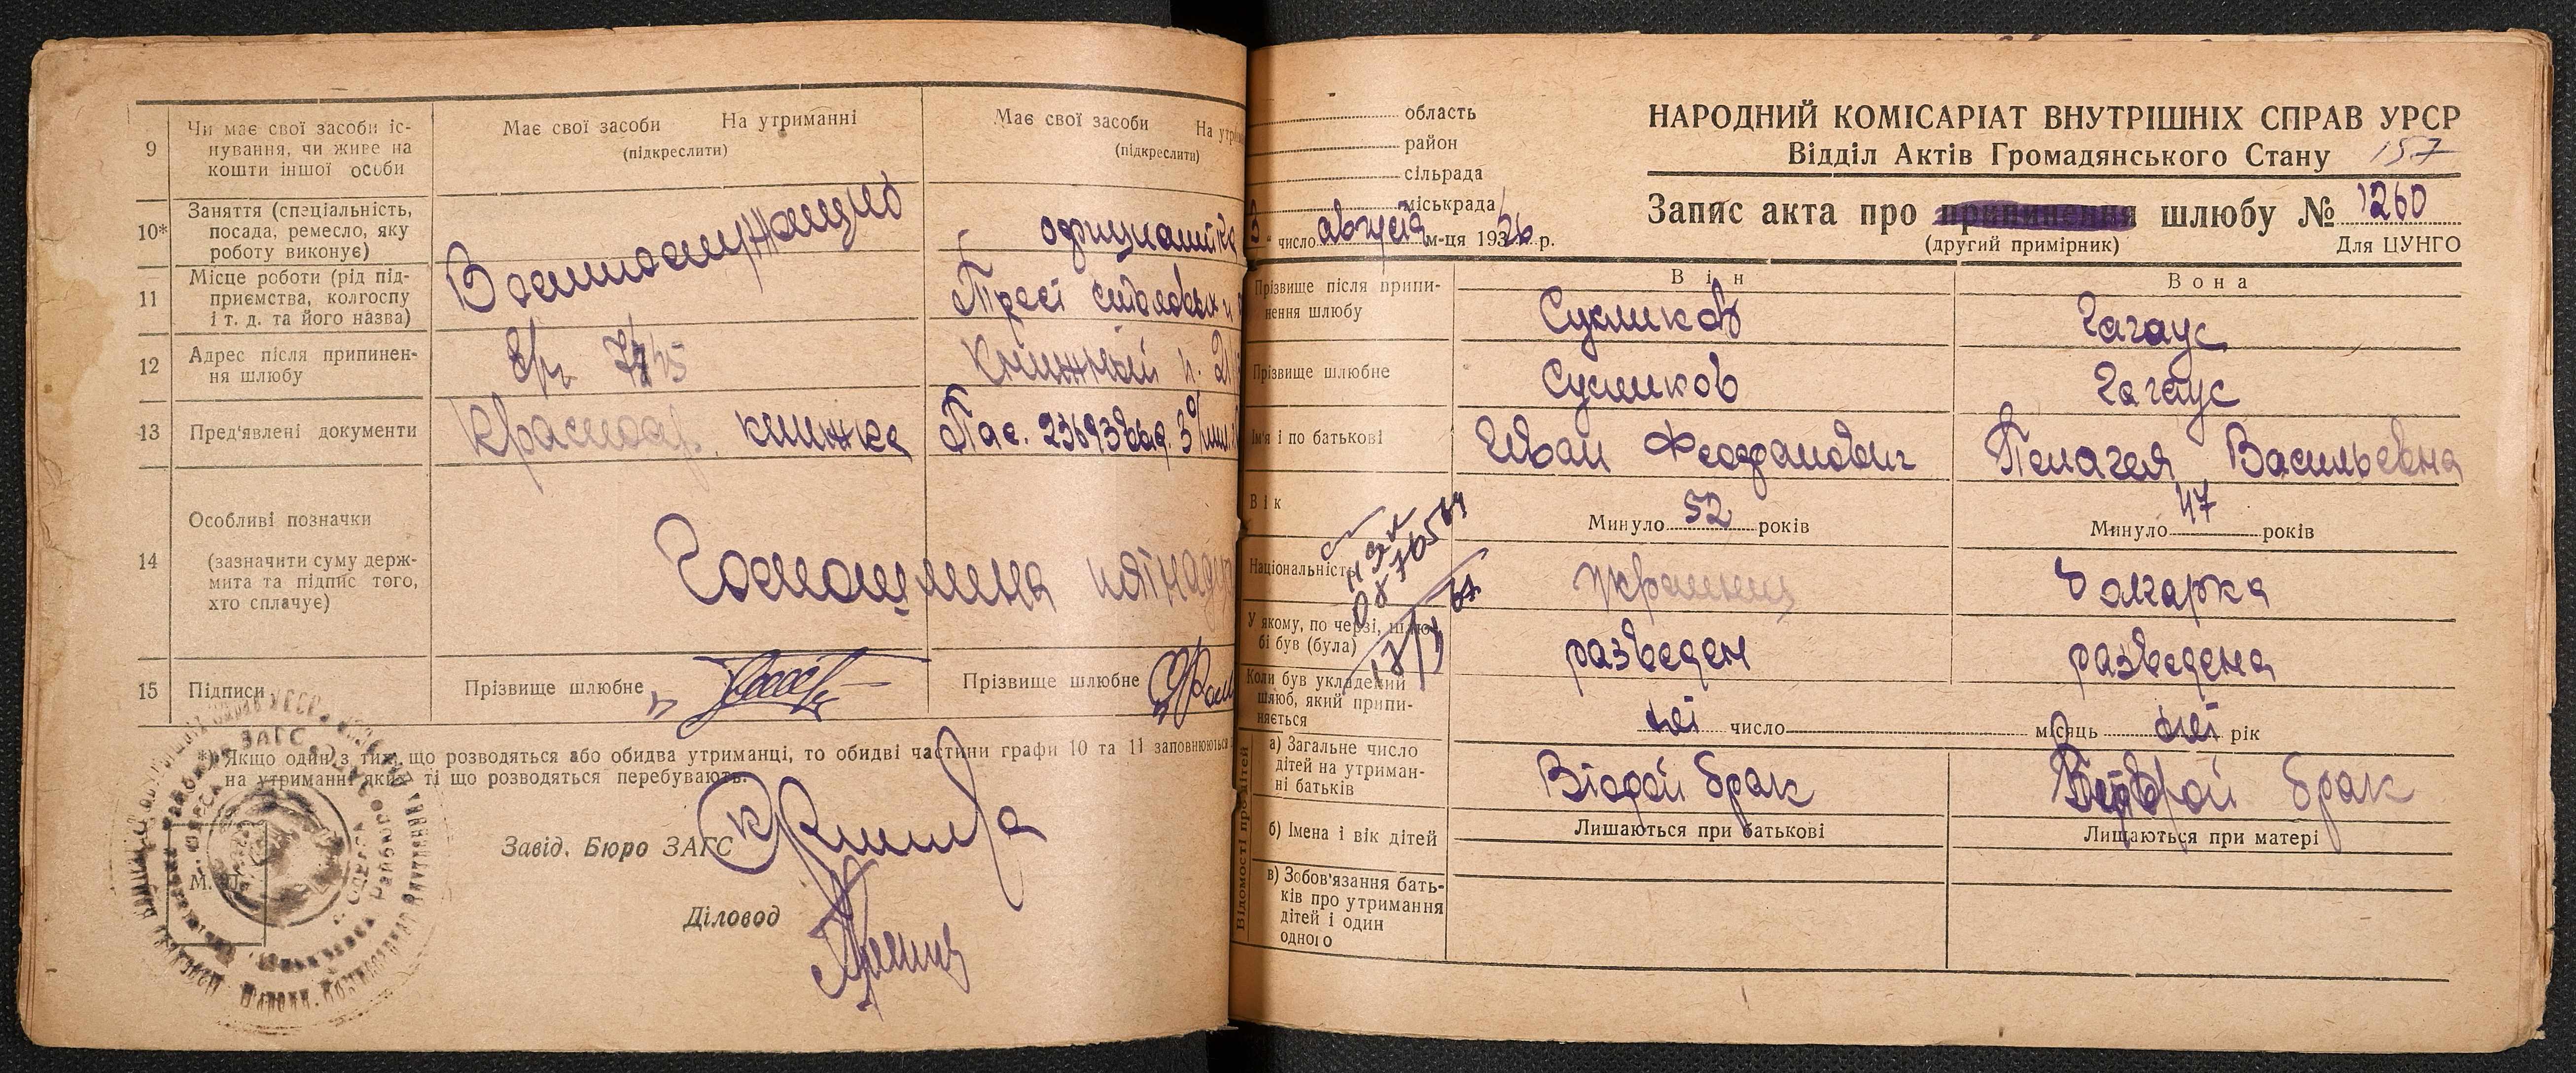 9
Чи має свої засоби іс-
нування, чи живе на
кошти іншої особи
Має свої засоби На утриманні
(підкреслити)
Має свої засоби На утри
(підкреслити)
10*
Заняття (спеціальність,
посада, ремесло, яку
роботу виконує)
Военнослужащий
официантка
11
Місце роботи (рід під-
приємства, колгоспу
і т. д. та його назва)
Трест столовых и
12
Адрес після припинен-
ня шлюбу
Книжный п. 21
13
Пред'явлені документи
Красноар. книжка
Пас. 23693 выд. 3
14
Особливі позначки
(зазначити суму держ-
мита та підпис того,
хто сплачує)
Госпошлина пятнадца
15
Підписи
Прізвище шлюбне
Прізвище шлюбне
*) Якщо один з тих, що розводяться або обидва утриманці, то обидві частини графи 10 та 11 заповнюються
на утриманні яких ті що розводяться перебувають.
Завід. Бюро ЗАГС
Діловод
М. П.
область
район
сільрада
міськрада
3 " число августа м-ця 1936 р.
НАРОДНИЙ КОМІСАРІАТ ВНУТРІШНІХ СПРАВ УРСР
Відділ Актів Громадянського Стану 157
Запис акта про припинення шлюбу № 1260
(другий примірник)
Для ЦУНГО
Він
Вона
Прізвище після припи-
нення шлюбу
Сусликов
Гагаус
Прізвище шлюбне
Сусликов
Гагаус
Ім'я і по батькові
Иван Феофанович
Пелагея Васильевна
Вік
Минуло 52 років
Минуло 47 років
Національність
украинец
болгарка
У якому, по черзі, шлю-
бі був (була)
разведен
разведена
Коли був укладений
шлюб, який припи-
няється
число
місяць
рік
Відомості про дітей
а) Загальне число
дітей на утриман-
ні батьків
Второй брак
Второй брак
б) Імена і вік дітей
Лишаються при батькові
Лишаються при матері
в) Зобов'язання бать-
ків про утримання
дітей і один
одного